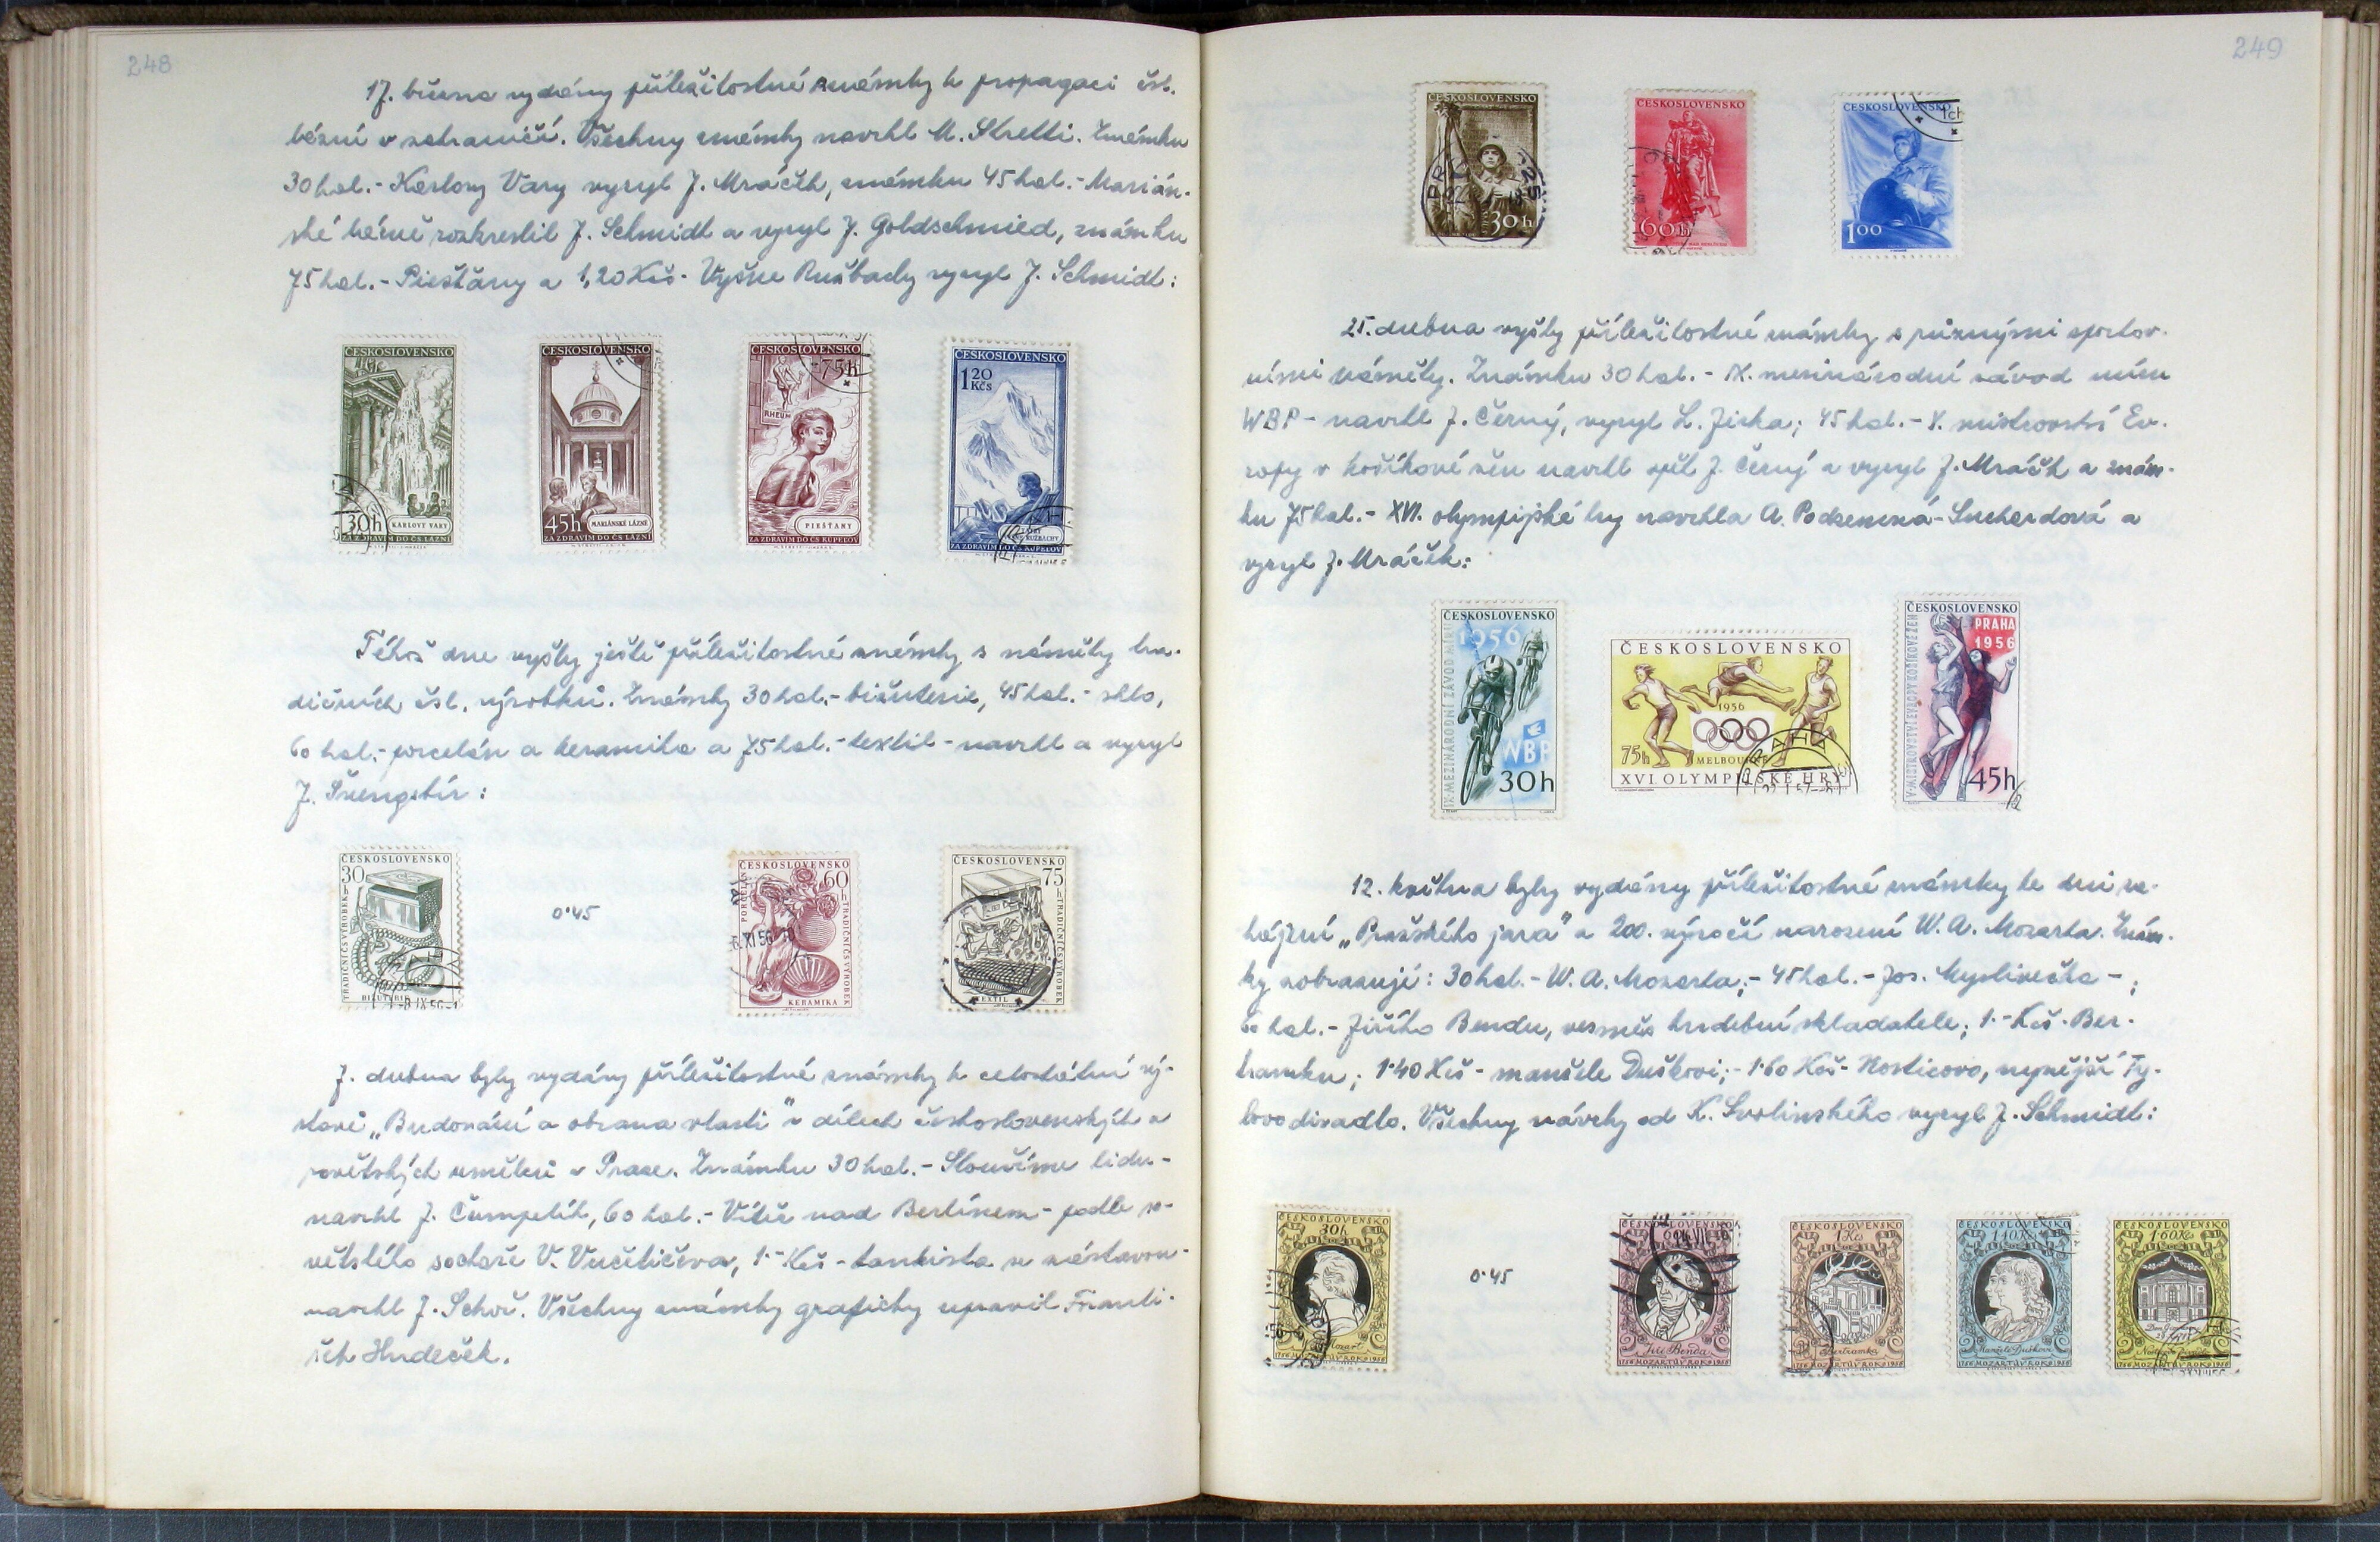 248
17. března vydány příležitostné známky k propagaci čsl.
lázní v zahraničí. Všechny známky navrhl M. Stretti. Známku
30 hal.- Karlovy Vary vyryl J. Mráček, známku 45 hal.- Marián-
ské lázně rozkreslil J. Schmidt a vyryl J. Goldschmied, známku
75 hal.- Piešťany a 1,20 Kčs - Vyšne Ružbachy vyryl J. Schmidt:
ČESKOSLOVENSKO
30h KARLOVY VARY
ZA ZDRAVÍM DO ČS LÁZNÍ
ČESKOSLOVENSKO
45h MARIÁNSKÉ LÁZNĚ
ZA ZDRAVÍM DO ČS LÁZNÍ
ČESKOSLOVENSKO
75h
RHEUMA
PIEŠŤANY
ZA ZDRAVIM DO ČS KÚPEĽOV
ČESKOSLOVENSKO
1 20 Kčs
RUŽBACHY
ZA ZDRAVIM DO ČS KÚPEĽOV
Téhož dne vyšly ještě příležitostné známky s náměty tra-
dičních čsl. výrobků. Známky 30 hal.- bižuterie, 45 hal.- sklo,
60 hal.- porcelán a keramika a 75 hal.- textil - navrhl a vyryl
J. Švengsbír:
ČESKOSLOVENSKO
30 h
TRADIČNÍ ČS VÝROBEK
BIŽUTERIE
-8.IX.56-1
0·45
ČESKOSLOVENSKO
60 h
PORCELÁN
TRADIČNÍ ČS VÝROBEK
KERAMIKA
6.XI.56
ČESKOSLOVENSKO
75 h
TRADIČNÍ ČS VÝROBEK
TEXTIL
7. dubna byly vydány příležitostné známky k celostátní vý-
stavě „Budování a obrana vlasti" v dílech československých a
sovětských umělců v Praze. Známku 30 hal.- Sloužíme lidu -
navrhl J. Čumpelík, 60 hal.- Vítěz nad Berlínem - podle so-
větského sochaře V. Vučetičeva, 1·- Kčs - tankista se zástavou -
navrhl J. Schoř. Všechny známky graficky upravil Franti-
šek Hudeček.
249
ČESKOSLOVENSKO
30 h
ČESKOSLOVENSKO
60 h
ČESKOSLOVENSKO
1 00
25. dubna vyšly příležitostné známky s různými sportov-
ními náměty. Známku 30 hal. - IX. mezinárodní závod míru
WBP - navrhl J. Černý, vyryl L. Jirka; 45 hal. - V. mistrovství Ev-
ropy v košíkové žen navrhl opět J. Černý a vyryl J. Mráček a znám-
ku 75 hal. - XVI. olympijské hry navrhla A. Podzemná-Suchardová a
vyryl J. Mráček:
ČESKOSLOVENSKO
1956
IX. MEZINÁRODNÍ ZÁVOD MÍRU
WBP
30h
ČESKOSLOVENSKO
1956
75h MELBOURNE
XVI. OLYMPIJSKÉ HRY
PRAHA
ČESKOSLOVENSKO
PRAHA
1956
V. MISTROVSTVÍ EVROPY V KOŠÍKOVÉ ŽEN
45h
12. května byly vydány příležitostné známky ke dni za-
hájení „Pražského jara" a 200. výročí narození W. A. Mozarta. Znám-
ky zobrazují: 30 hal. - W. A. Mozarta; - 45 hal. - Jos. Myslivečka - ;
60 hal. - Jiřího Bendu, vesměs hudební skladatele; 1·- Kčs - Ber-
tramku; 1·40 Kčs - manžele Duškovi; - 1·60 Kčs - Nosticovo, nynější Ty-
lovo divadlo. Všechny návrhy od K. Svolinského vyryl J. Schmidt:
ČESKOSLOVENSKO
30h
Mozart
1756 MOZARTŮV ROK 1956
0·45
ČESKOSLOVENSKO
Jiří Benda
1756 MOZARTŮV ROK 1956
ČESKOSLOVENSKO
1 Kčs
Bertramka
1756 MOZARTŮV ROK 1956
ČESKOSLOVENSKO
1·40 Kčs
Manželé Duškovi
1756 MOZARTŮV ROK 1956
ČESKOSLOVENSKO
1·60 Kčs
1756 MOZARTŮV ROK 1956